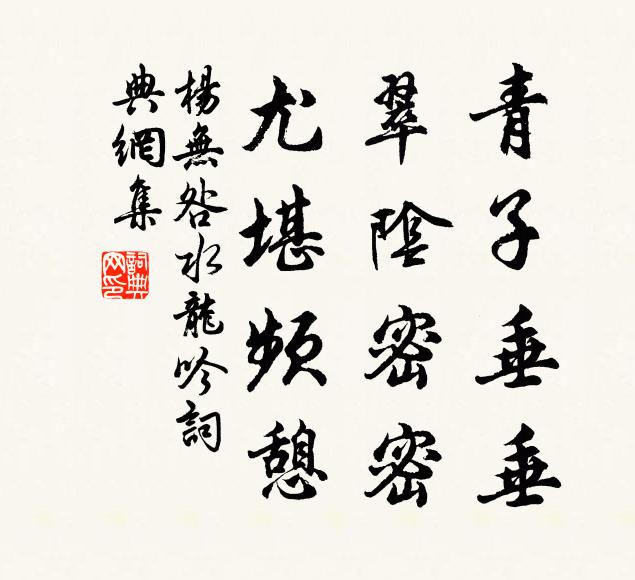 青子垂垂
翠陰密密
尤堪頻憩
楊無咎水龍吟詞
典網集
詞典
网印